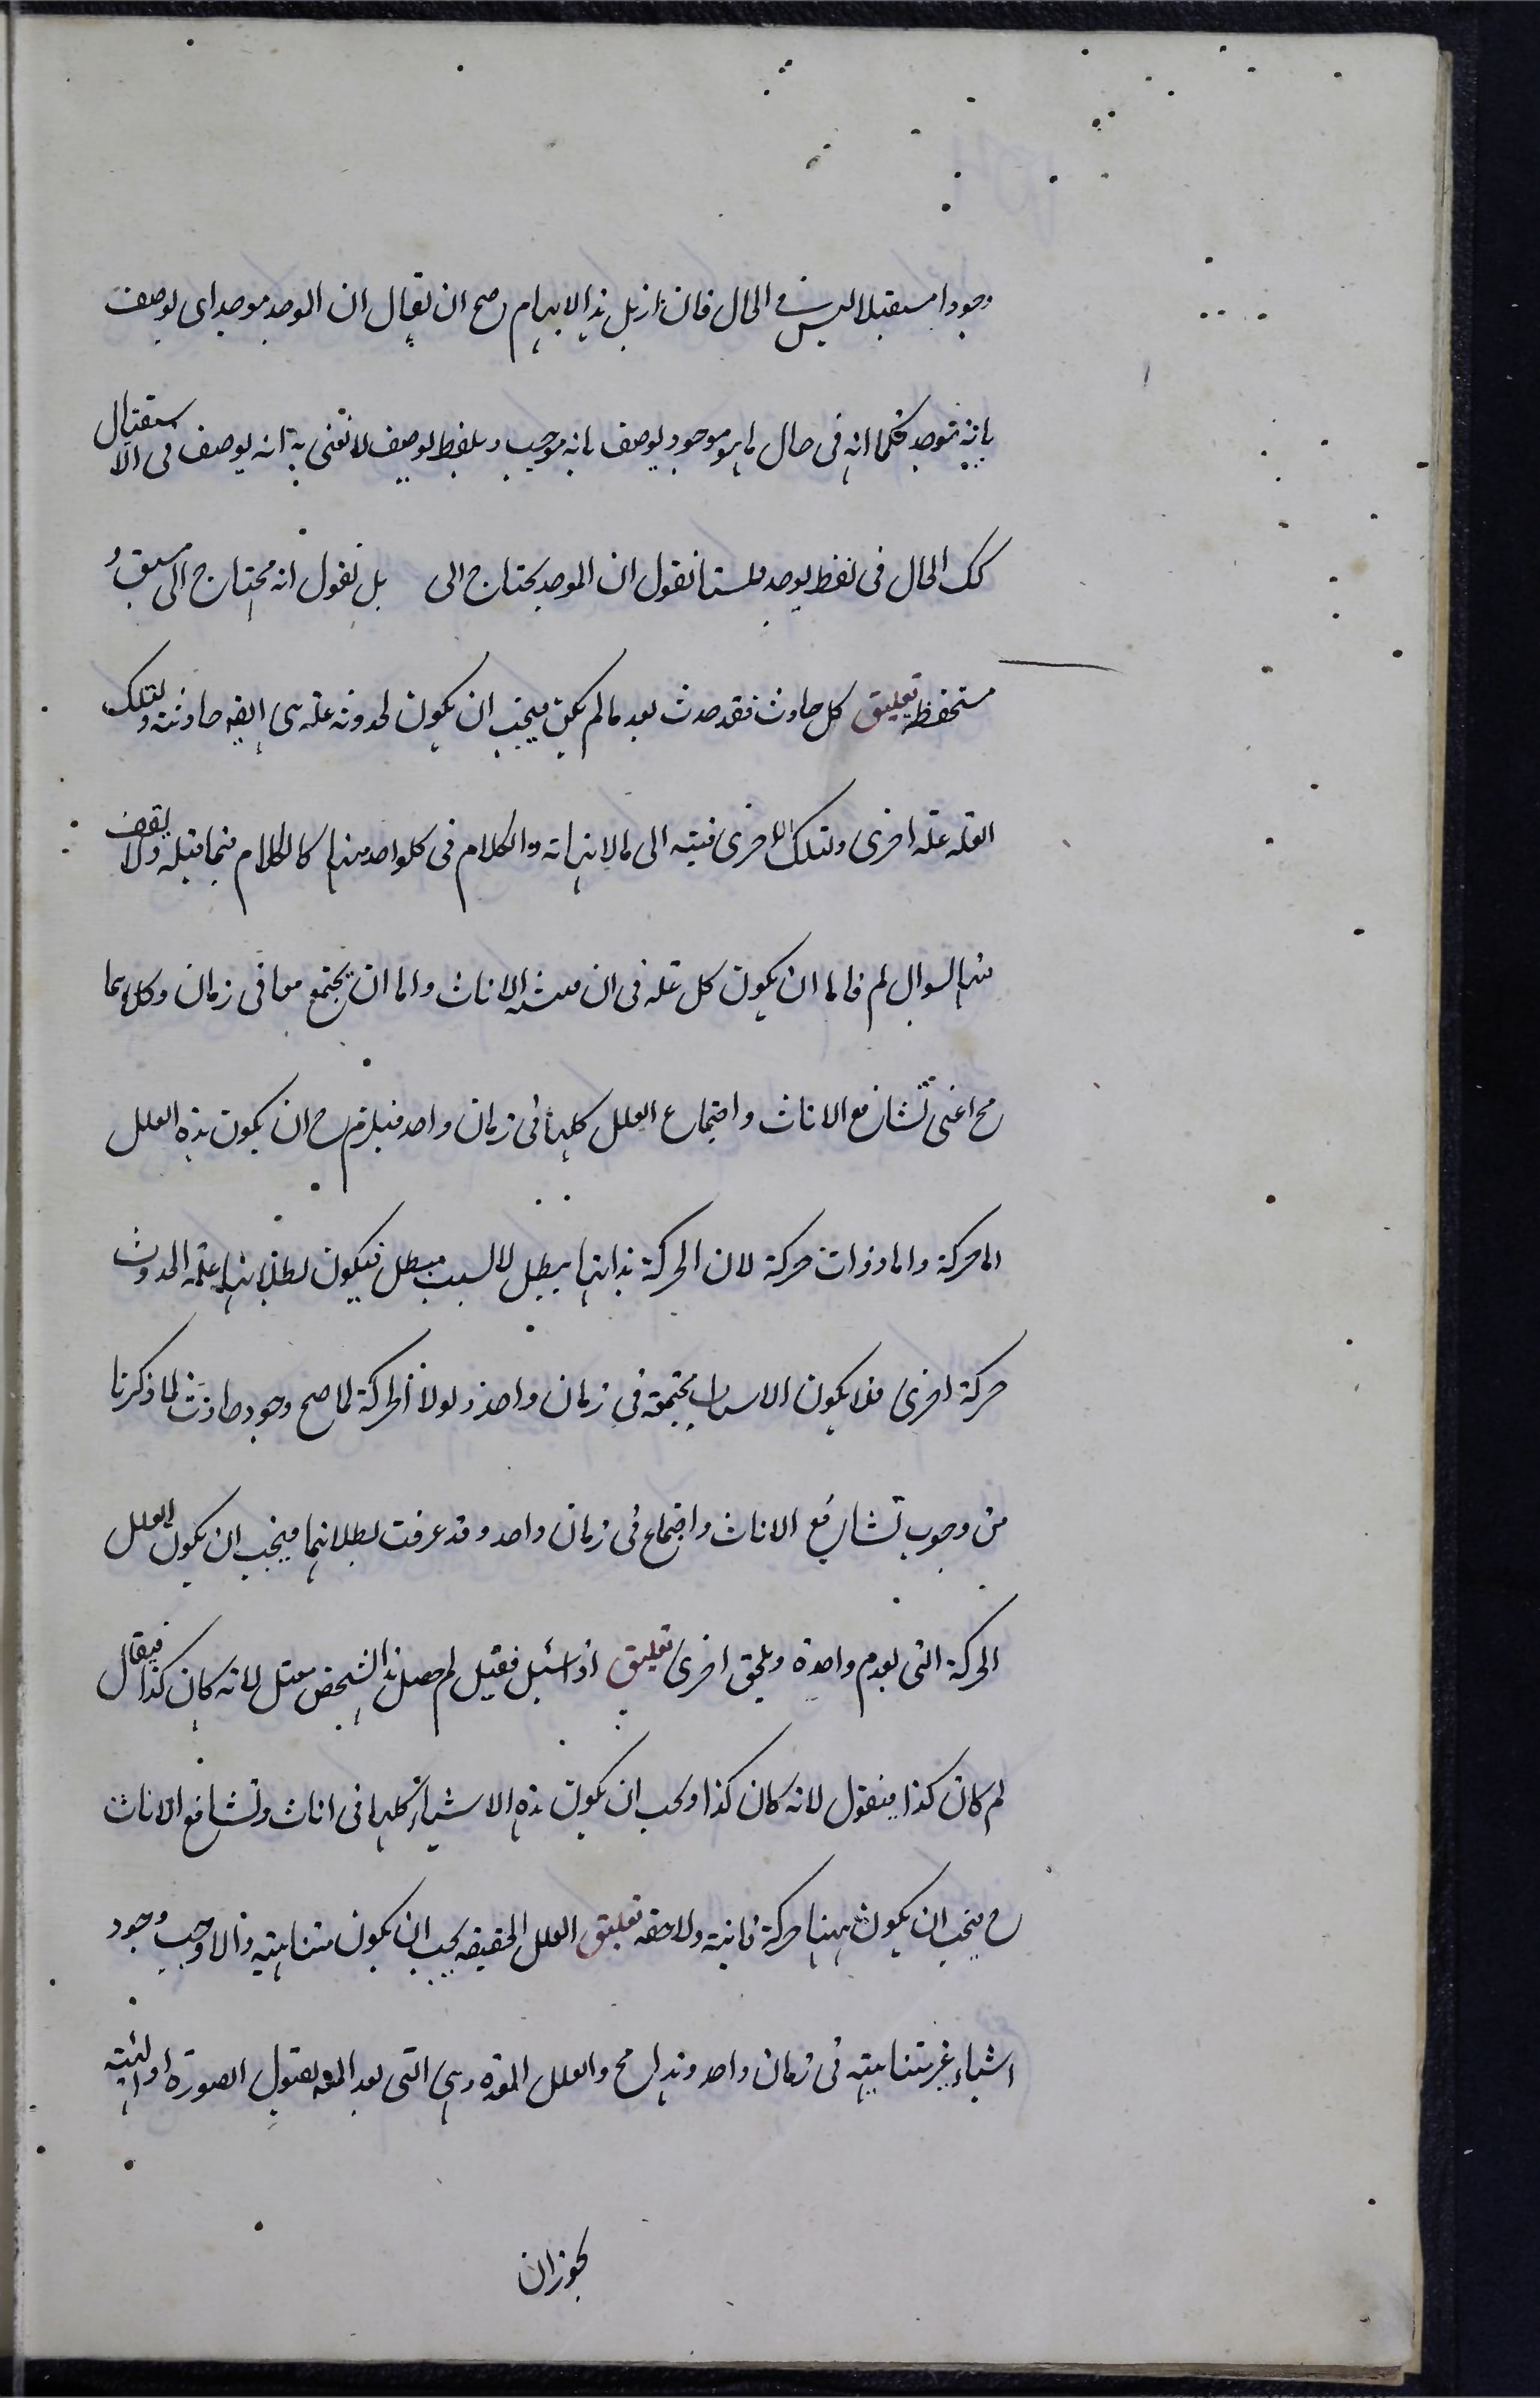 وجودا مستقبلا ليس فى الحال فان ازيل هذا الايهام صح ان يقال ان الموجد موجد اى يوصف
بانه موجد فكما انه فى حال ما هو موجود يوصف بانه موجب و بلفظ يوصف لا نعنى به انه يوصف فى الاستقبال
كك الحال فى لفظ يوجد فلسنا نقول ان الموجد يحتاج الى بل نقول انه محتاج الى مسبق و
مستحفظ تعليق كل حادث فقد حدث بعد ما لم يكن فيجب ان يكون لحدوثه علة هى ايضه حادثة و لتلك
العله علة اخرى و لتلك الاخرى فيته الى مالا نهاته والكلام فى كلواحد منها كالكلام فيما قبله ولا يقف
منه السوال لم فاما ان يكون كل علة فى ان فيتشا الانات و اما ان يجتمع معا فى زمان و كلاهما
مح اعنى تشافع الانات و اجتماع العلل كلها فى زمان واحد فيلزم ح ان يكون هذه العلل
اما حركة و اما ذوات حركة لان الحركة بذاتها يبطل لا لسبب مبطل فيكون بطلانها علة الحدوث
حركة اخرى فلا يكون الاسباب مجتمعة فى زمان واحد و لولا الحركة لما صح وجود حادث لما ذكرنا
من وجوب تشافع الانات و اجتماع فى زمان واحد و قد عرفت بطلانهما فيجب ان يكون العلل
الحركة التى يعدم واحدة و يلحق اخرى تعليق اذا سئل فقيل لم حصل هذا الشخص مثل لانه كان كذا فيقال
لم كان كذا فيقول لانه كان كذا و يجب ان يكون هذه الاشياء كلها فى انات و تشافع الانات
ح فيجب ان يكون ههنا حركة فانية و لاحقه تعليق العلل الحقيقيه يجب ان يكون متناهية و الا وجب وجود
اشياء غير متناهية فى زمان واحد و هذا مح و العلل المعدة و هى التى يعد المعه لقبول الصورة او الهيئة
يجوز ان